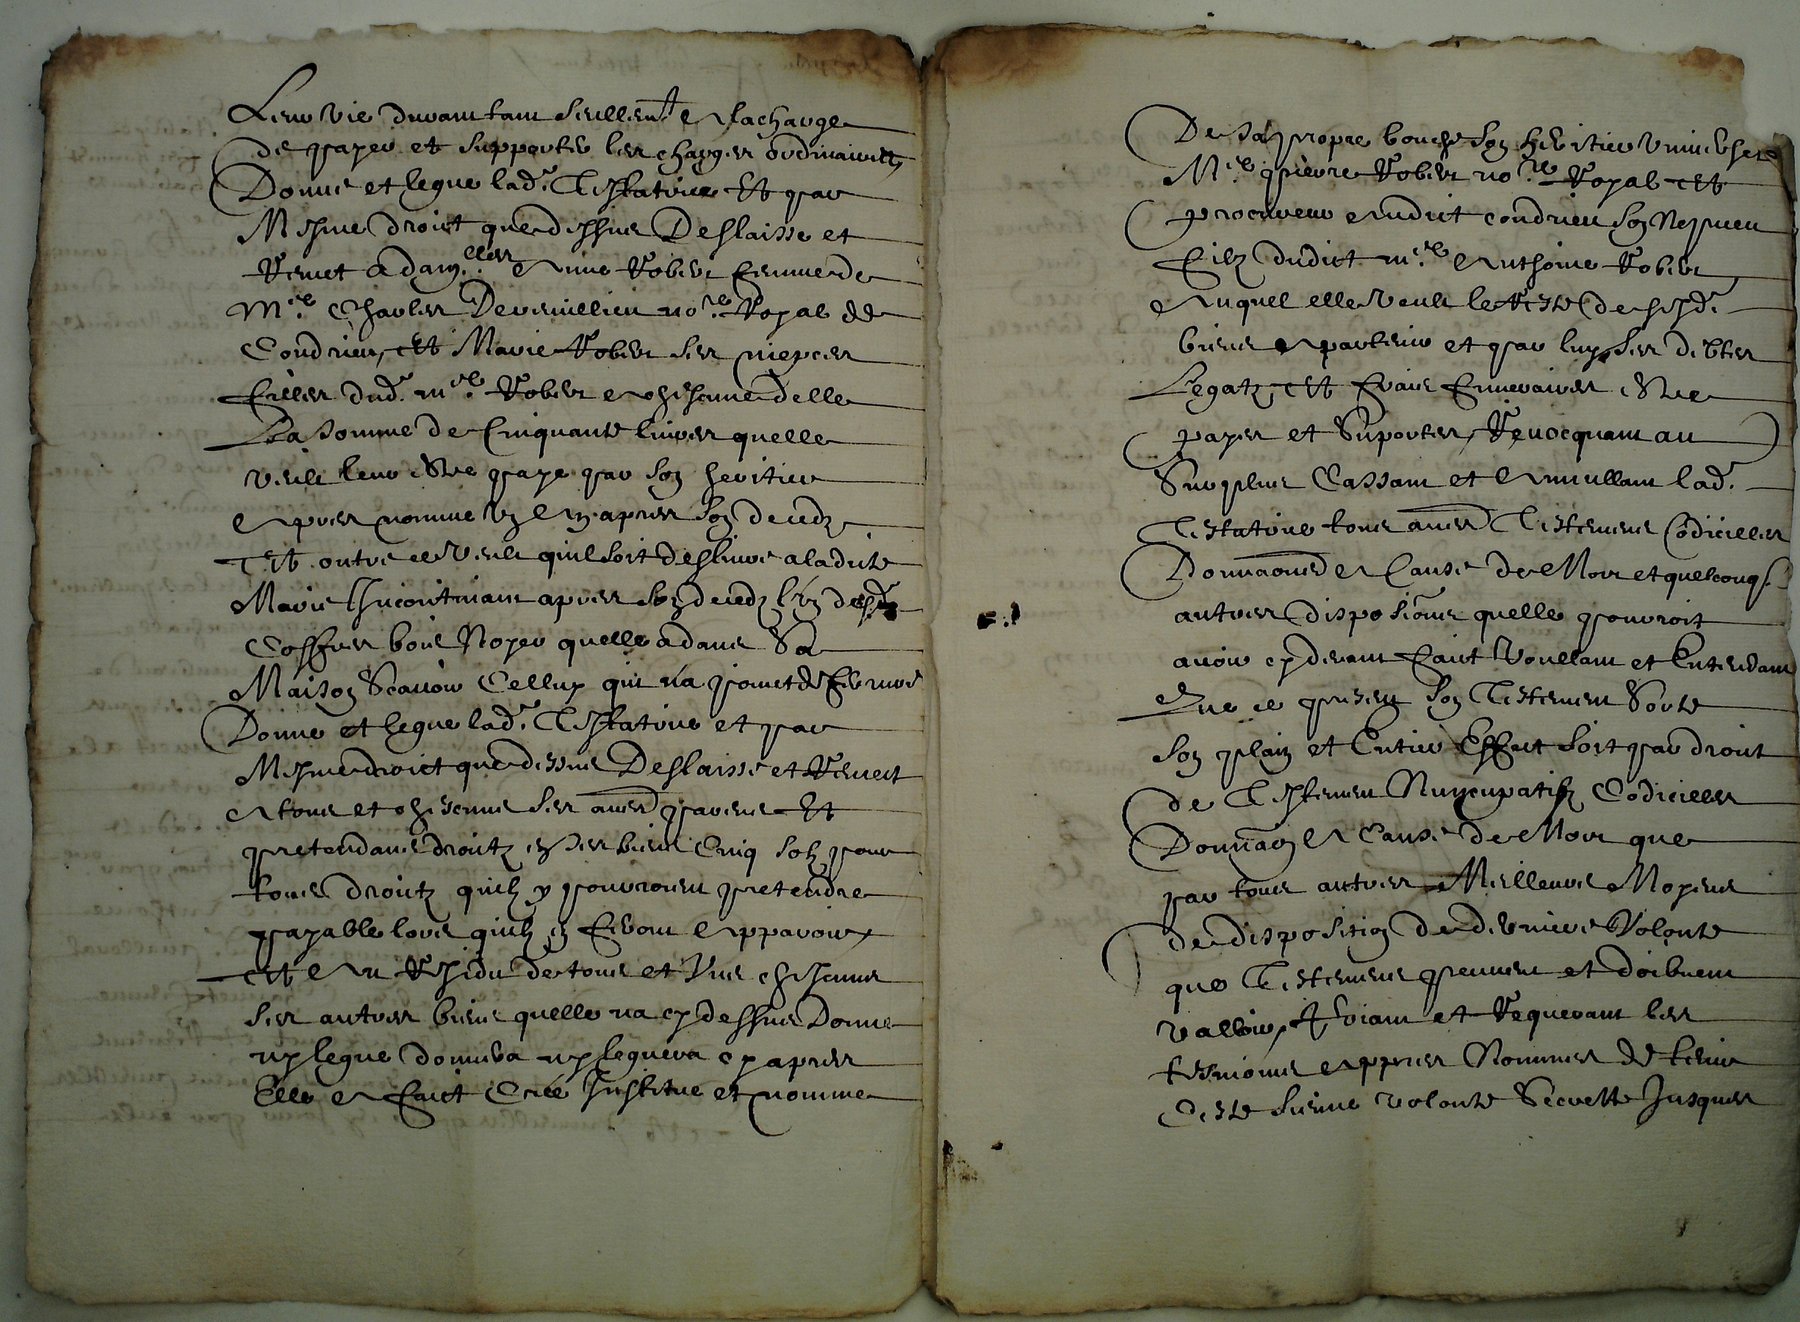 Leur vie durant tant seullemt a la charge
de payer et supporter les charges ordinaires
Donne et legue lad. Testatrice Et par
Mesme droict que dessus Deslaisse et
Remet a dam.lles Anne Robert femme de
M.re Charles Devermillieu no.re Royal de
Condrieu, Et Marie Robert ses niepces
filles dud. m.re Robert a chascune delle
La somme de Cinquante livres quelle
veult leur estre paye par son heritier
apres nomme un An apres son decedz
Et outre ce Veult quil soit deslivre a ladicte
Marie Incontinant apres son decedz l'un de ses
Coffres bois Noyer quelle a dans Sa
Maison Scavoir Celluy qui n'a point de ferrure
Donne et legue lad. Testatrice et par
Mesme droict que dessus Deslaisse et Remect
A tous et chascuns ses aures parens Et
pretendans droictz en ses biens Cinq solz pour
tous droictz quilz y pourroient pretendre
payable lors quilz en feront Apparoir
Et Au Residu de tous et Uns chascuns
ses autres biens quelle na cy dessus Donne
ny legue donnera ny leguera cy apres
Elle A faict Cree Institue et nomme
De sa propre bouche son heritier universel
M.re pierre Robert no.re Royal Et
procureur audict condrieu son Nepveu
filz dudict m.re Anthoine Robert
Auquel elle veult le Reste de sesd.
biens apartenir et par luy ses debtes
Legatz, Et frais funeraires estre
payes et Suportes, Revocquant au
Surplus Cassant et Annullant lad.
Testatrice tous aures Testemens Codicilles
Donnaons A Cause de Mort et quelconqs
autres dispositions quelle pourroit
avoir cy devant faict Voullant et Entendant
Que ce present son Testement Sorte
son plain et Entier Effect soit par droict
de Testement Nuncupatif Codicilles
Donnaon A Cause de Mort que
par tous autres Meilleurs Moyens
de disposition de derniere Volonte
que Testemens peuvent et doibvent
valloir, Priant et Requerant les
tesmoins apres Nommes de tenir
Ceste sienne volonte Secrette Jusques